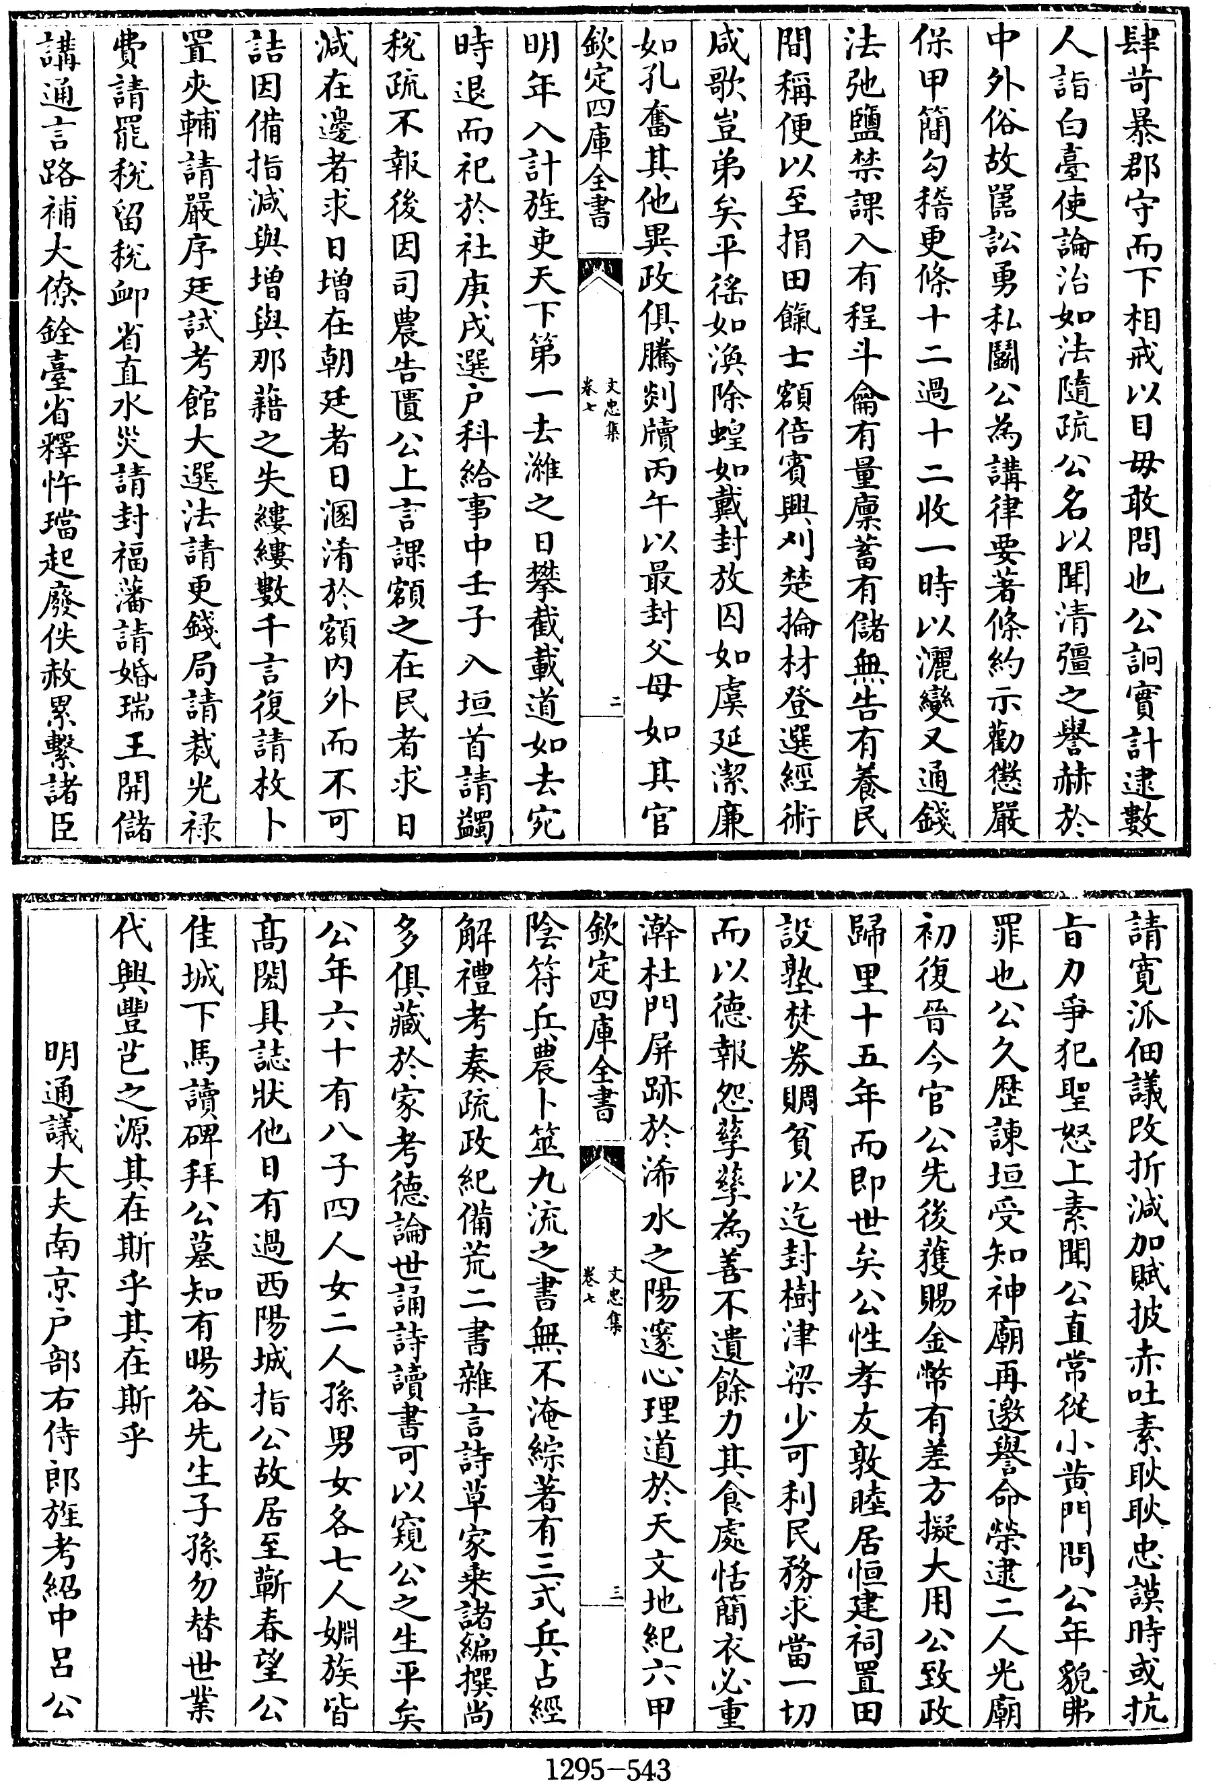 肆苛暴郡守而下相戒以目毋敢問也公詗實計逮數
人詣白臺使論治如法隨疏公名以聞清彊之譽赫於
中外俗故嚚訟勇私鬬公為講律要著條約示勸懲嚴
保甲簡勾稽更條十二過十二收一時以灑變又通錢
法弛鹽禁課入有程斗龠有量廪蓄有儲無告有養民
間稱便以至捐田餼士額倍賓興刈楚掄材登選經術
咸歌豈弟矣平徭如渙除蝗如戴封放囚如虞延潔廉
如孔奮其他異政俱騰剡牘丙午以最封父母如其官
欽定四庫全書
文忠集
卷七
二
明年入計旌吏天下第一去濰之日攀截載道如去宛
時退而祀於社庚戌選户科給事中壬子入垣首請蠲
稅疏不報後因司農告匱公上言課額之在民者求日
減在邊者求日增在朝廷者日溷淆於額内外而不可
詰因備指減與增與那藉之失縷縷數千言復請枚卜
置夾輔請嚴序廷試考館大選法請更錢局請裁光禄
費請罷稅留稅卹省直水災請封福藩請婚瑞王開儲
講通言路補大僚銓臺省釋忤璫起廢佚赦累繫諸臣
請寛派佃議改折減加賦披赤吐素耿耿忠謨時或抗
㫖力爭犯聖怒上素聞公直常從小黄門問公年貌弗
罪也公久歴諫垣受知神廟再邀譽命榮逮二人光廟
初復晉今官公先後獲賜金幣有差方擬大用公致政
歸里十五年而即世矣公性孝友敦睦居恒建祠置田
設塾焚券賙貧以迄封樹津梁少可利民務求當一切
而以德報怨孳孳為善不遺餘力其食處恬簡衣必重
澣杜門屏跡於浠水之陽邃心理道於天文地紀六甲
欽定四庫全書
文忠集
卷七
三
陰符兵農卜筮九流之書無不淹綜著有三式兵占經
解禮考奏疏政紀備荒二書雜言詩草家乗諸編撰尚
多俱藏於家考德論世誦詩讀書可以窺公之生平矣
公年六十有八子四人女二人孫男女各七人婣族皆
髙閎具誌狀他日有過西陽城指公故居至蘄春望公
佳城下馬讀碑拜公墓知有暘谷先生子孫勿替世業
代興豐芑之源其在斯乎其在斯乎
明通議大夫南京户部右侍郎旌考紹中呂公
1295－543